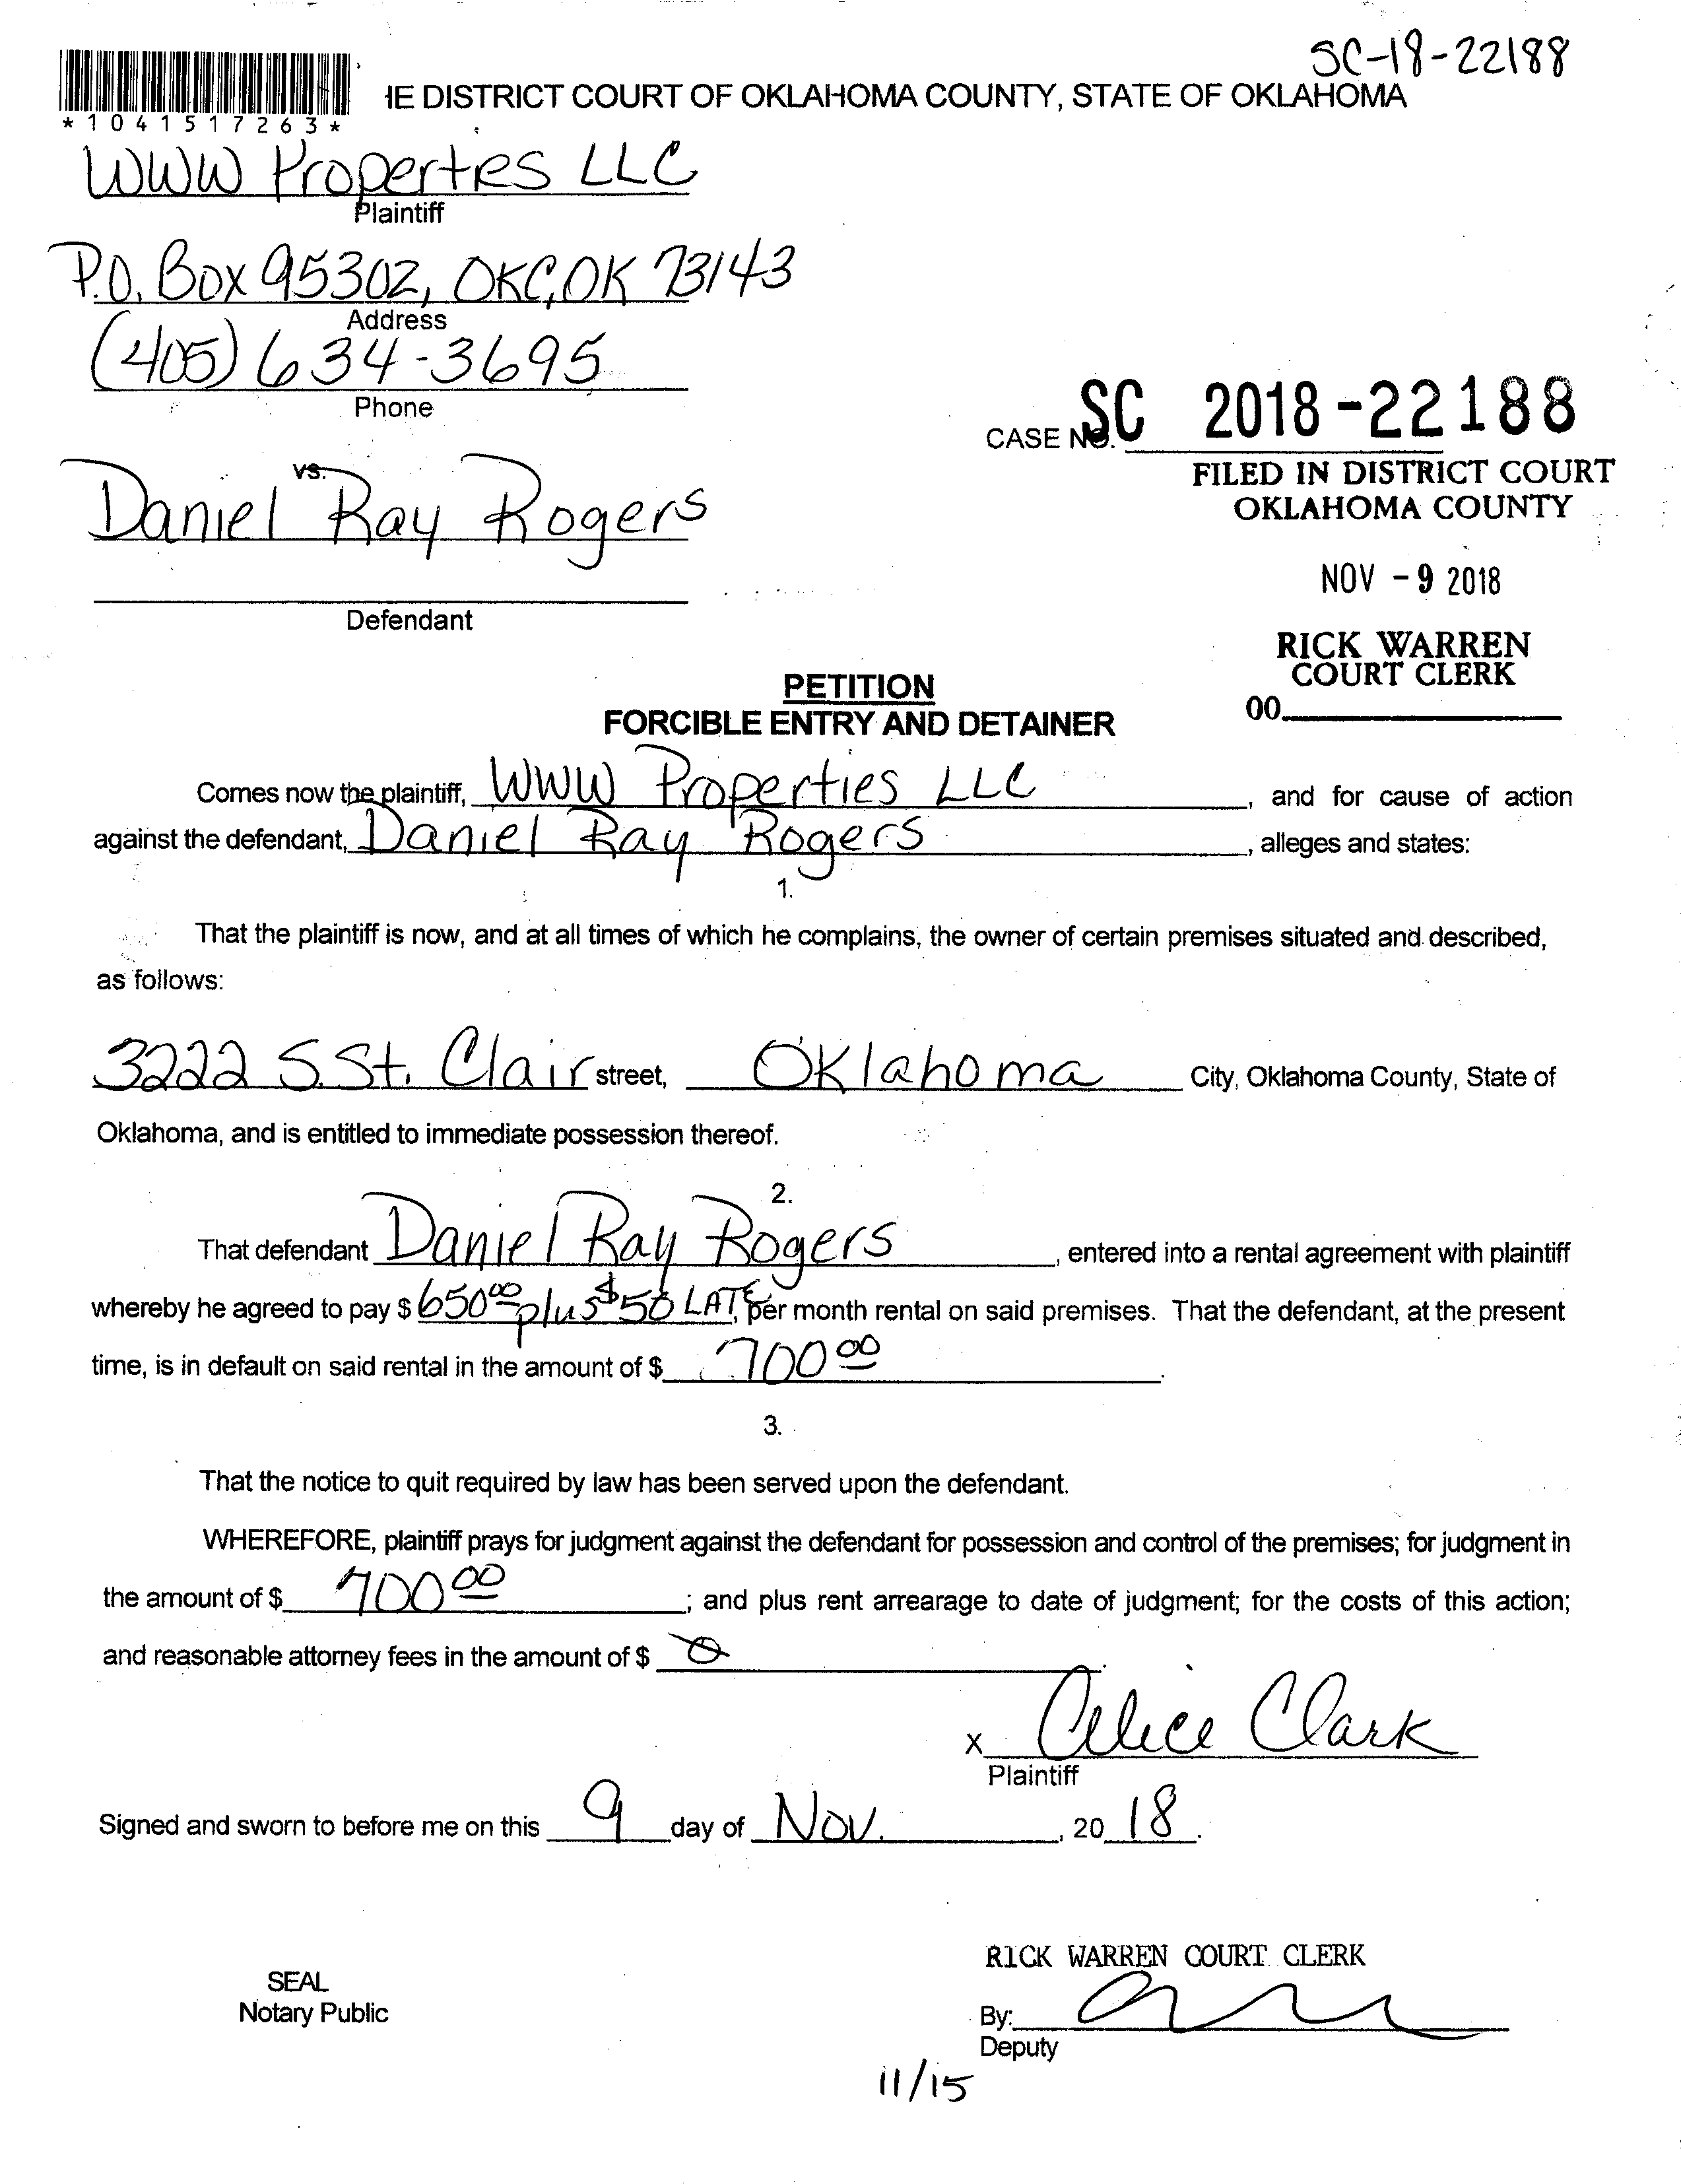 SC-18-22188
IE DISTRICT COURT OF OKLAHOMA COUNTY, STATE OF OKLAHOMA
*1041517263*
WWW Properties LLC
Plaintiff
P.O. Box 95302, OKC, OK 73143
Address
(405) 634-3695
Phone
CASE NO. SC 2018-22188
FILED IN DISTRICT COURT
OKLAHOMA COUNTY
vs.
Daniel Ray Rogers
NOV - 9 2018
Defendant
RICK WARREN
COURT CLERK
00
PETITION
FORCIBLE ENTRY AND DETAINER
Comes now the plaintiff, WWW Properties LLC, and for cause of action
against the defendant, Daniel Ray Rogers, alleges and states:
1.
That the plaintiff is now, and at all times of which he complains, the owner of certain premises situated and described,
as follows:
3222 S. St. Clair street, Oklahoma City, Oklahoma County, State of
Oklahoma, and is entitled to immediate possession thereof.
2.
That defendant Daniel Ray Rogers, entered into a rental agreement with plaintiff
whereby he agreed to pay $ 650 00 plus $50 LATE, per month rental on said premises. That the defendant, at the present
time, is in default on said rental in the amount of $ 700 00.
3.
That the notice to quit required by law has been served upon the defendant.
WHEREFORE, plaintiff prays for judgment against the defendant for possession and control of the premises; for judgment in
the amount of $ 700 00; and plus rent arrearage to date of judgment; for the costs of this action;
and reasonable attorney fees in the amount of $ 0.
x Alice Clark
Plaintiff
Signed and sworn to before me on this 9 day of Nov., 20 18.
RICK WARREN COURT CLERK
SEAL
Notary Public
By:
Deputy
11/15